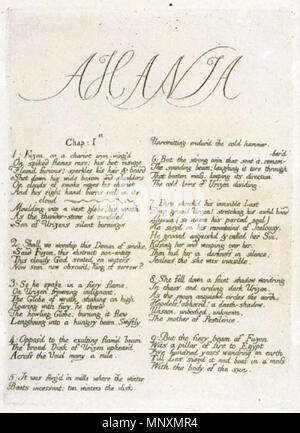 AHANIA
Chap: Ist
1: Fuzon, on a chariot iron-wing'd
On spiked flames rose; his hot visage
Flam'd furious; sparkles his hair & beard
Shot down his wide bosom and shoulders
On clouds of smoke rages his chariot
And his right hand burns red in its
cloud
Moulding into a vast globe, his wrath
As the thunder-stone is moulded
Son of Urizens silent burnings
2: Shall we worship this Demon of smoke,
Said Fuzon, this abstract non-entity
This cloudy God seated on waters
Now seen, now obscur'd; King of sorrow?
3: So he spoke, in a fiery flame,
On Urizen frowning indignant,
The Globe of wrath shaking on high
Roaring with fury, he threw
The howling Globe: burning it flew
Lengthning into a hungry beam. Swiftly
4: Oppos'd to the exulting flam'd beam
The broad Disk of Urizen upheav'd
Across the Void many a mile.
5: It was forg'd in mills where the winter
Beats incessant; ten winters the disk
Unremitting endur'd the cold hammer.
6: But the strong arm that sent it, remem-
-ber'd
The sounding beam; laughing it tore through
That beaten mass: keeping its direction
The cold loins of Urizen dividing.
7: Dire shriek'd his invisible Lust
Deep groan'd Urizen! stretching his awful hand
Ahania (so name his parted soul)
He siez'd on his mountains of Jealousy.
He groand anguishd & called her Sin,
Kissing her and weeping over her;
Then hid her in darkness in silence;
Jealous tho' she was invisible.
8: She fell down a faint shadow wandring
In chaos and circling dark Urizen,
As the moon anguishd circles the earth;
Hopeless! abhorrd! a death-shadow,
Unseen, unbodied, unknown,
The mother of Pestilence.
9: But the fiery beam of Fuzon
Was a pillar of fire to Egypt
Five hundred years wandring on earth
Till Los siezd it and beat in a mass
With the body of the sun.